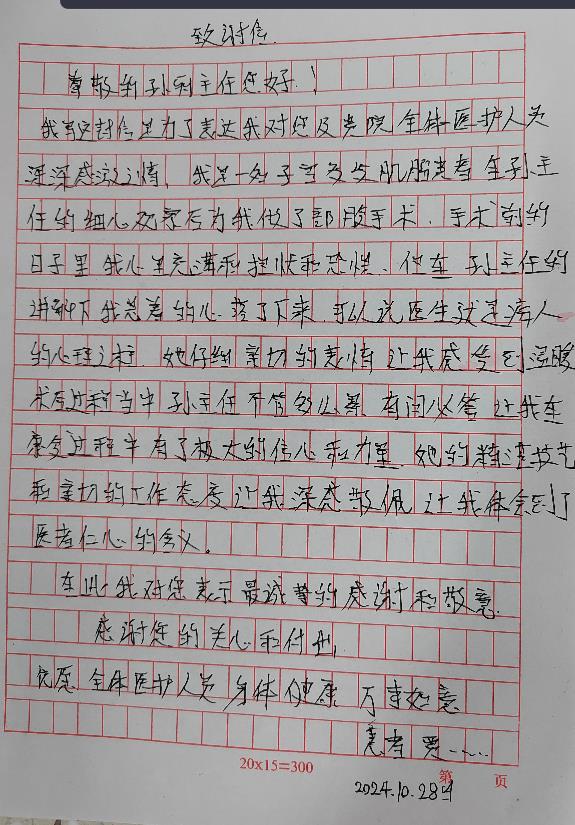 致谢信
尊敬的孙利主任您好！
我写这封信是为了表达我对您及贵院全体医护人员
深深感激之情，我是一名子宫多发肌腺患者 在孙主
任的细心观察后为我做了部腹手术．手术前的
日子里 我心里充满和担忧和恐惧．但在 孙主任的
讲解下我忐忑的心 落了下来 可以说医生就是病人
的心理之柱．她仔细亲切的表情让我感觉到温暖
术后过程当中 孙主任不管多么累 有问必答 让我在
康复过程中有了极大的信心和力量 她的精湛技艺
和亲切的工作态度让我深感敬佩 让我体会到了
医者仁心的含义。
在此我对您表示最诚挚的感谢和敬意．
感谢您的关心和付出
祝愿 全体医护人员 身体健康 万事如意
患者 贾……
20x15=300
第 页
2024.10.28日